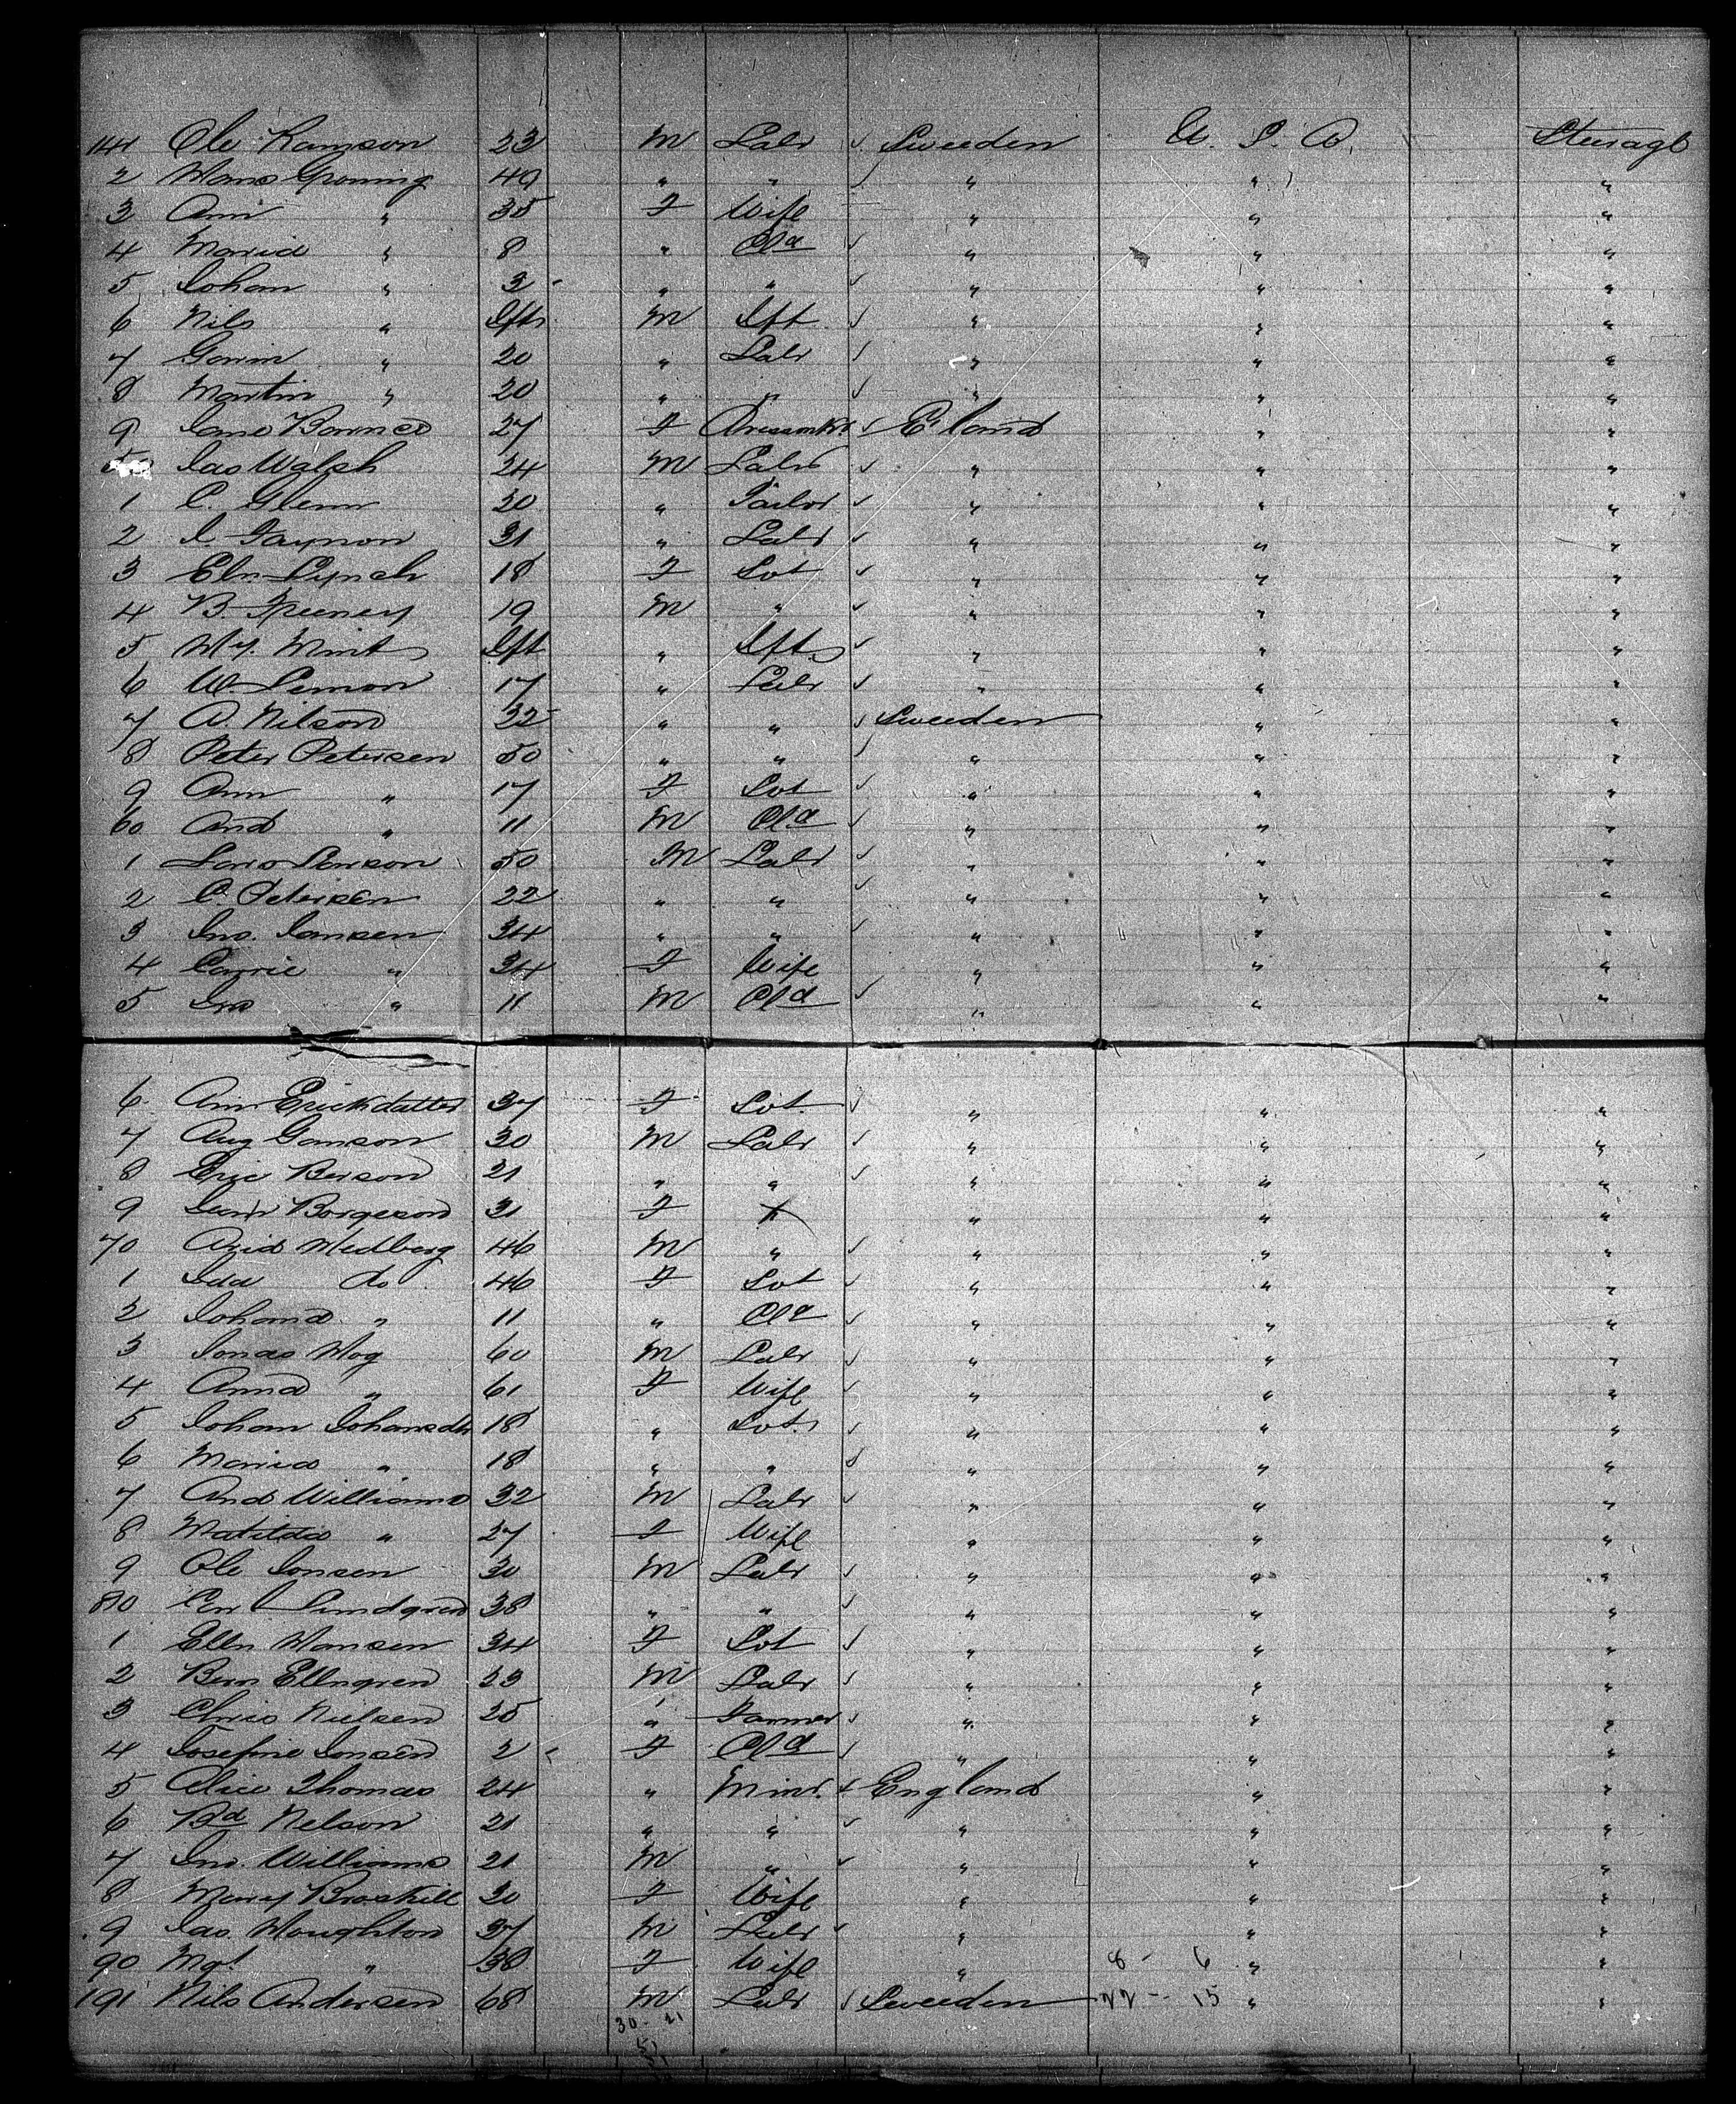 141 Ole Ramson 23 M Labr ✓ Sweden U. S. A. Steerage
2 Hans Groning 49 " " ✓ " " "
3 Ann " 35 F Wife " " "
4 Maria " 8 " Chd ✓ " " "
5 Johan " 3 " " ✓ " " "
6 Nils " Ift M Ift ✓ " " "
7 " 20 " Labr ✓ " " "
8 Martin " 20 " " ✓ " " "
9 Jane 27 F ✓ E'land " "
50 Jas Walsh 24 M Labr ✓ " " "
1 C. Glenn 20 " Tailor ✓ " " "
2 J. Gaynon 31 " Labr ✓ " " "
3 Eln Lynch 18 F Svt ✓ " " "
4 B. 19 M " ✓ " " "
5 Ift " Ift ✓ " " "
6 W. Lemon 17 " Labr ✓ " " "
7 A. Nilson 32 " " ✓ Sweden " "
8 Peter Petersen 50 " " ✓ " " "
9 Ann " 17 F Svt ✓ " " "
60 And " 11 M Chd ✓ " " "
1 Lars Larson 50 M Labr ✓ " " "
2 C. Petersen 22 " " ✓ " " "
3 Jno. Jansen 34 " " ✓ " " "
4 Carrie " 34 F Wife " " "
5 Jno " 11 M Chd ✓ " " "
6 Ann Erickdatter 37 F Svt ✓ " " "
7 Aug Gamson 30 M Labr ✓ " " "
8 Eric Berson 21 " " ✓ " " "
9 Borgeson 31 F " " "
70 Hedberg 46 M " ✓ " " "
1 Ida do 46 F Svt ✓ " " "
2 Johana " 11 " Chd ✓ " " "
3 Jonas Hog 60 M Labr ✓ " " "
4 Anna " 61 F Wife ✓ " " "
5 Johan Johansdtr 18 " Svt ✓ " " "
6 Maria " 18 " " ✓ " " "
7 And Williams 32 M Labr ✓ " " "
8 Matilda " 27 F Wife " " "
9 Ole Jonsen 30 M Labr ✓ " " "
80 Carl Lundgren 38 " " ✓ " " "
1 Ellen Hansen 34 F Svt ✓ " " "
2 Bern Ellngren 23 M Labr ✓ " " "
3 Chris Nielsen 25 " Farmer ✓ " " "
4 Josefine Jonsen 2 F Chd ✓ " " "
5 Alice Thomas 24 " ✓ England " "
6 Bd Nelson 21 " " ✓ " " "
7 Jno. Williams 21 M " ✓ " " "
8 Mary 30 F Wife " " "
9 Jas. Houghton 37 M Labr ✓ " " "
90 Mgt " 38 F Wife " 8 - 6 " "
191 Nils Andersen 68 M Labr ✓ Sweden 22 - 15 " "
30 - 21
51